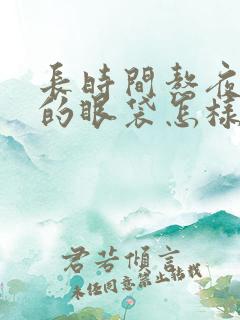 長時間熬夜
的眼袋怎樣
君若傾言
未经同意禁止转载